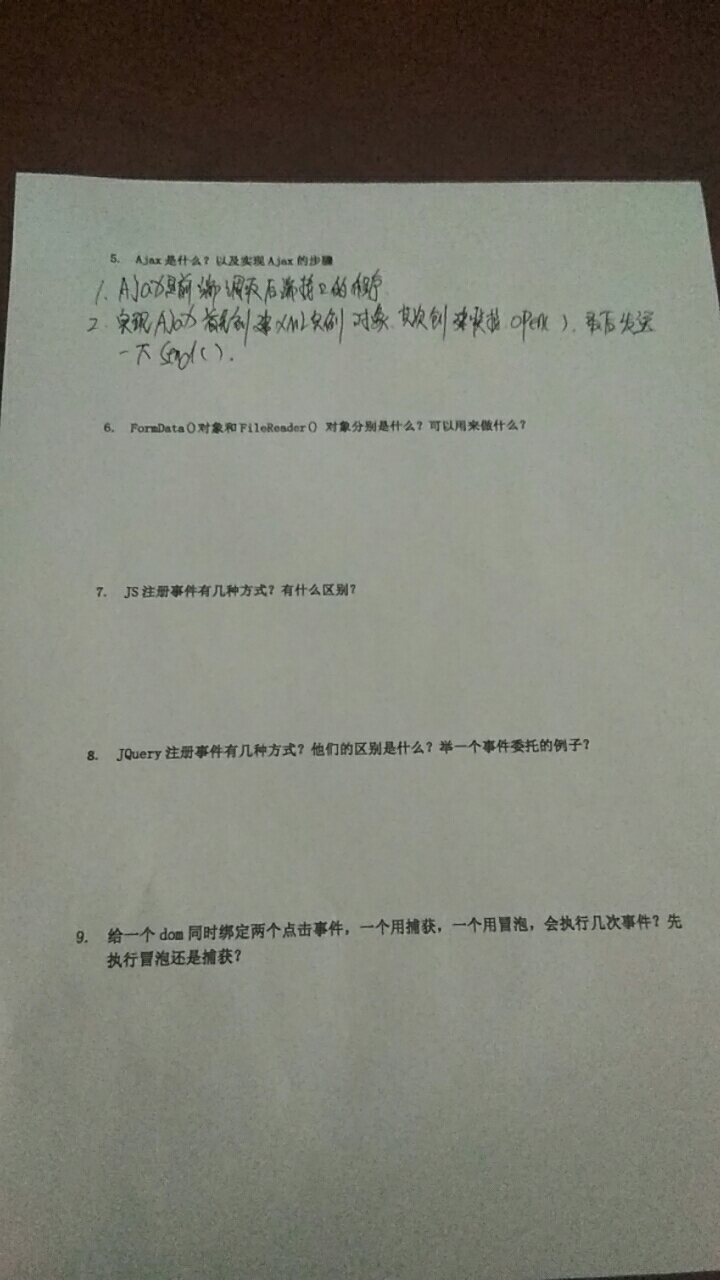 5. Ajax是什么？以及实现Ajax的步骤
1. Ajax是前端调取后端接口的程序
2. 实现Ajax首先创建XML实例对象.其次创建链接open().最后发送
一个send().
6. FormData()对象和FileReader() 对象分别是什么？可以用来做什么？
7. JS注册事件有几种方式？有什么区别？
8. JQuery注册事件有几种方式？他们的区别是什么？举一个事件委托的例子？
9. 给一个dom同时绑定两个点击事件，一个用捕获，一个用冒泡，会执行几次事件？先
执行冒泡还是捕获？